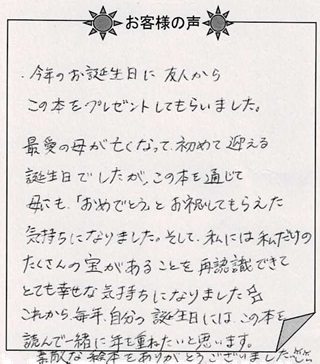 お客様の声
・今年のお誕生日に友人から
この本をプレゼントしてもらいました。
最愛の母が亡くなって、初めて迎える
誕生日でしたが、この本を通じて
母にも、「おめでとう」とお祝してもらえた
気持ちになりました。そして、私には私だけの
たくさんの宝があることを再認識できて
とても幸せな気持ちになりました☆
これから、毎年、自分の誕生日には、この本を
読んで一緒に年を重ねたいと思います。
素敵な絵本をありがとうございました